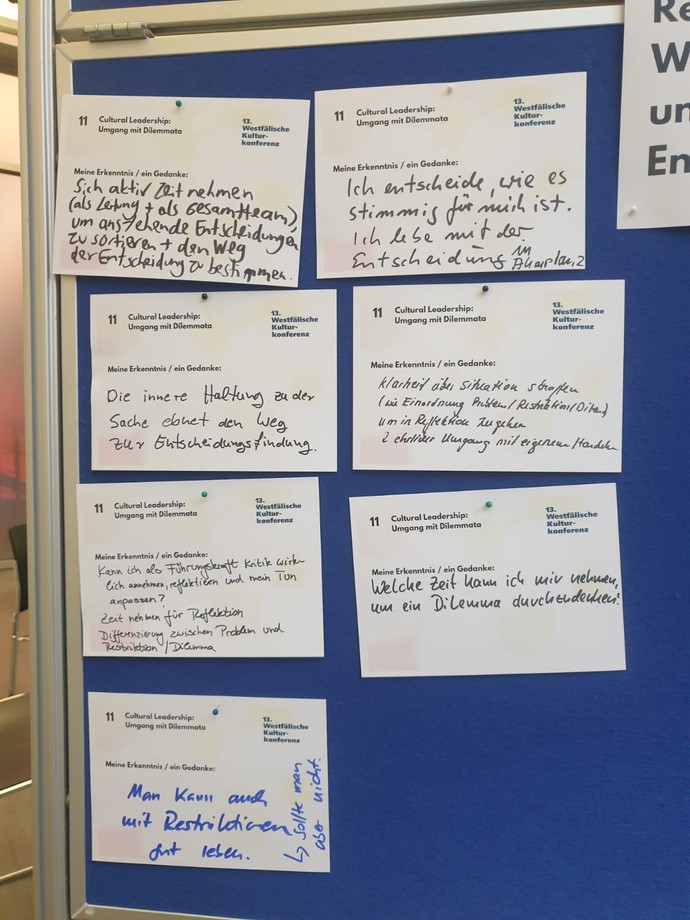 11 Cultural Leadership:
Umgang mit Dilemmata
13.
Westfälische
Kultur-
konferenz
Meine Erkenntnis / ein Gedanke:
Sich aktiv Zeit nehmen
(als Leitung + als Gesamtteam),
um anstehende Entscheidungen
zu sortieren + den Weg
der Entscheidung zu bestimmen.
11 Cultural Leadership:
Umgang mit Dilemmata
13.
Westfälische
Kultur-
konferenz
Meine Erkenntnis / ein Gedanke:
Ich entscheide, wie es
stimmig für mich ist.
Ich lebe mit der
Entscheidung im
11 Cultural Leadership:
Umgang mit Dilemmata
13.
Westfälische
Kultur-
konferenz
Meine Erkenntnis / ein Gedanke:
Die innere Haltung zu der
Sache ebnet den Weg
zur Entscheidungsfindung.
11 Cultural Leadership:
Umgang mit Dilemmata
13.
Westfälische
Kultur-
konferenz
Meine Erkenntnis / ein Gedanke:
Klarheit über Situation schaffen
(wie Einordnung Problem/Restriktion/
um in Reflektion zu gehen
ehrlicher Umgang mit eigenem Handeln
11 Cultural Leadership:
Umgang mit Dilemmata
13.
Westfälische
Kultur-
konferenz
Meine Erkenntnis / ein Gedanke:
Kann ich als Führungskraft Kritik wirk-
lich annehmen, reflektieren und mein Tun
anpassen?
Zeit nehmen für Reflektion
Differenzierung zwischen Problem und
Restriktion / Dilemma
11 Cultural Leadership:
Umgang mit Dilemmata
13.
Westfälische
Kultur-
konferenz
Meine Erkenntnis / ein Gedanke:
Welche Zeit kann ich mir nehmen,
um ein Dilemma durchzudenken?
11 Cultural Leadership:
Umgang mit Dilemmata
13.
Westfälische
Kultur-
konferenz
Meine Erkenntnis / ein Gedanke:
Man kann auch
mit Restriktionen
gut leben.
↳ sollte man
aber nicht.
Re
W
un
En